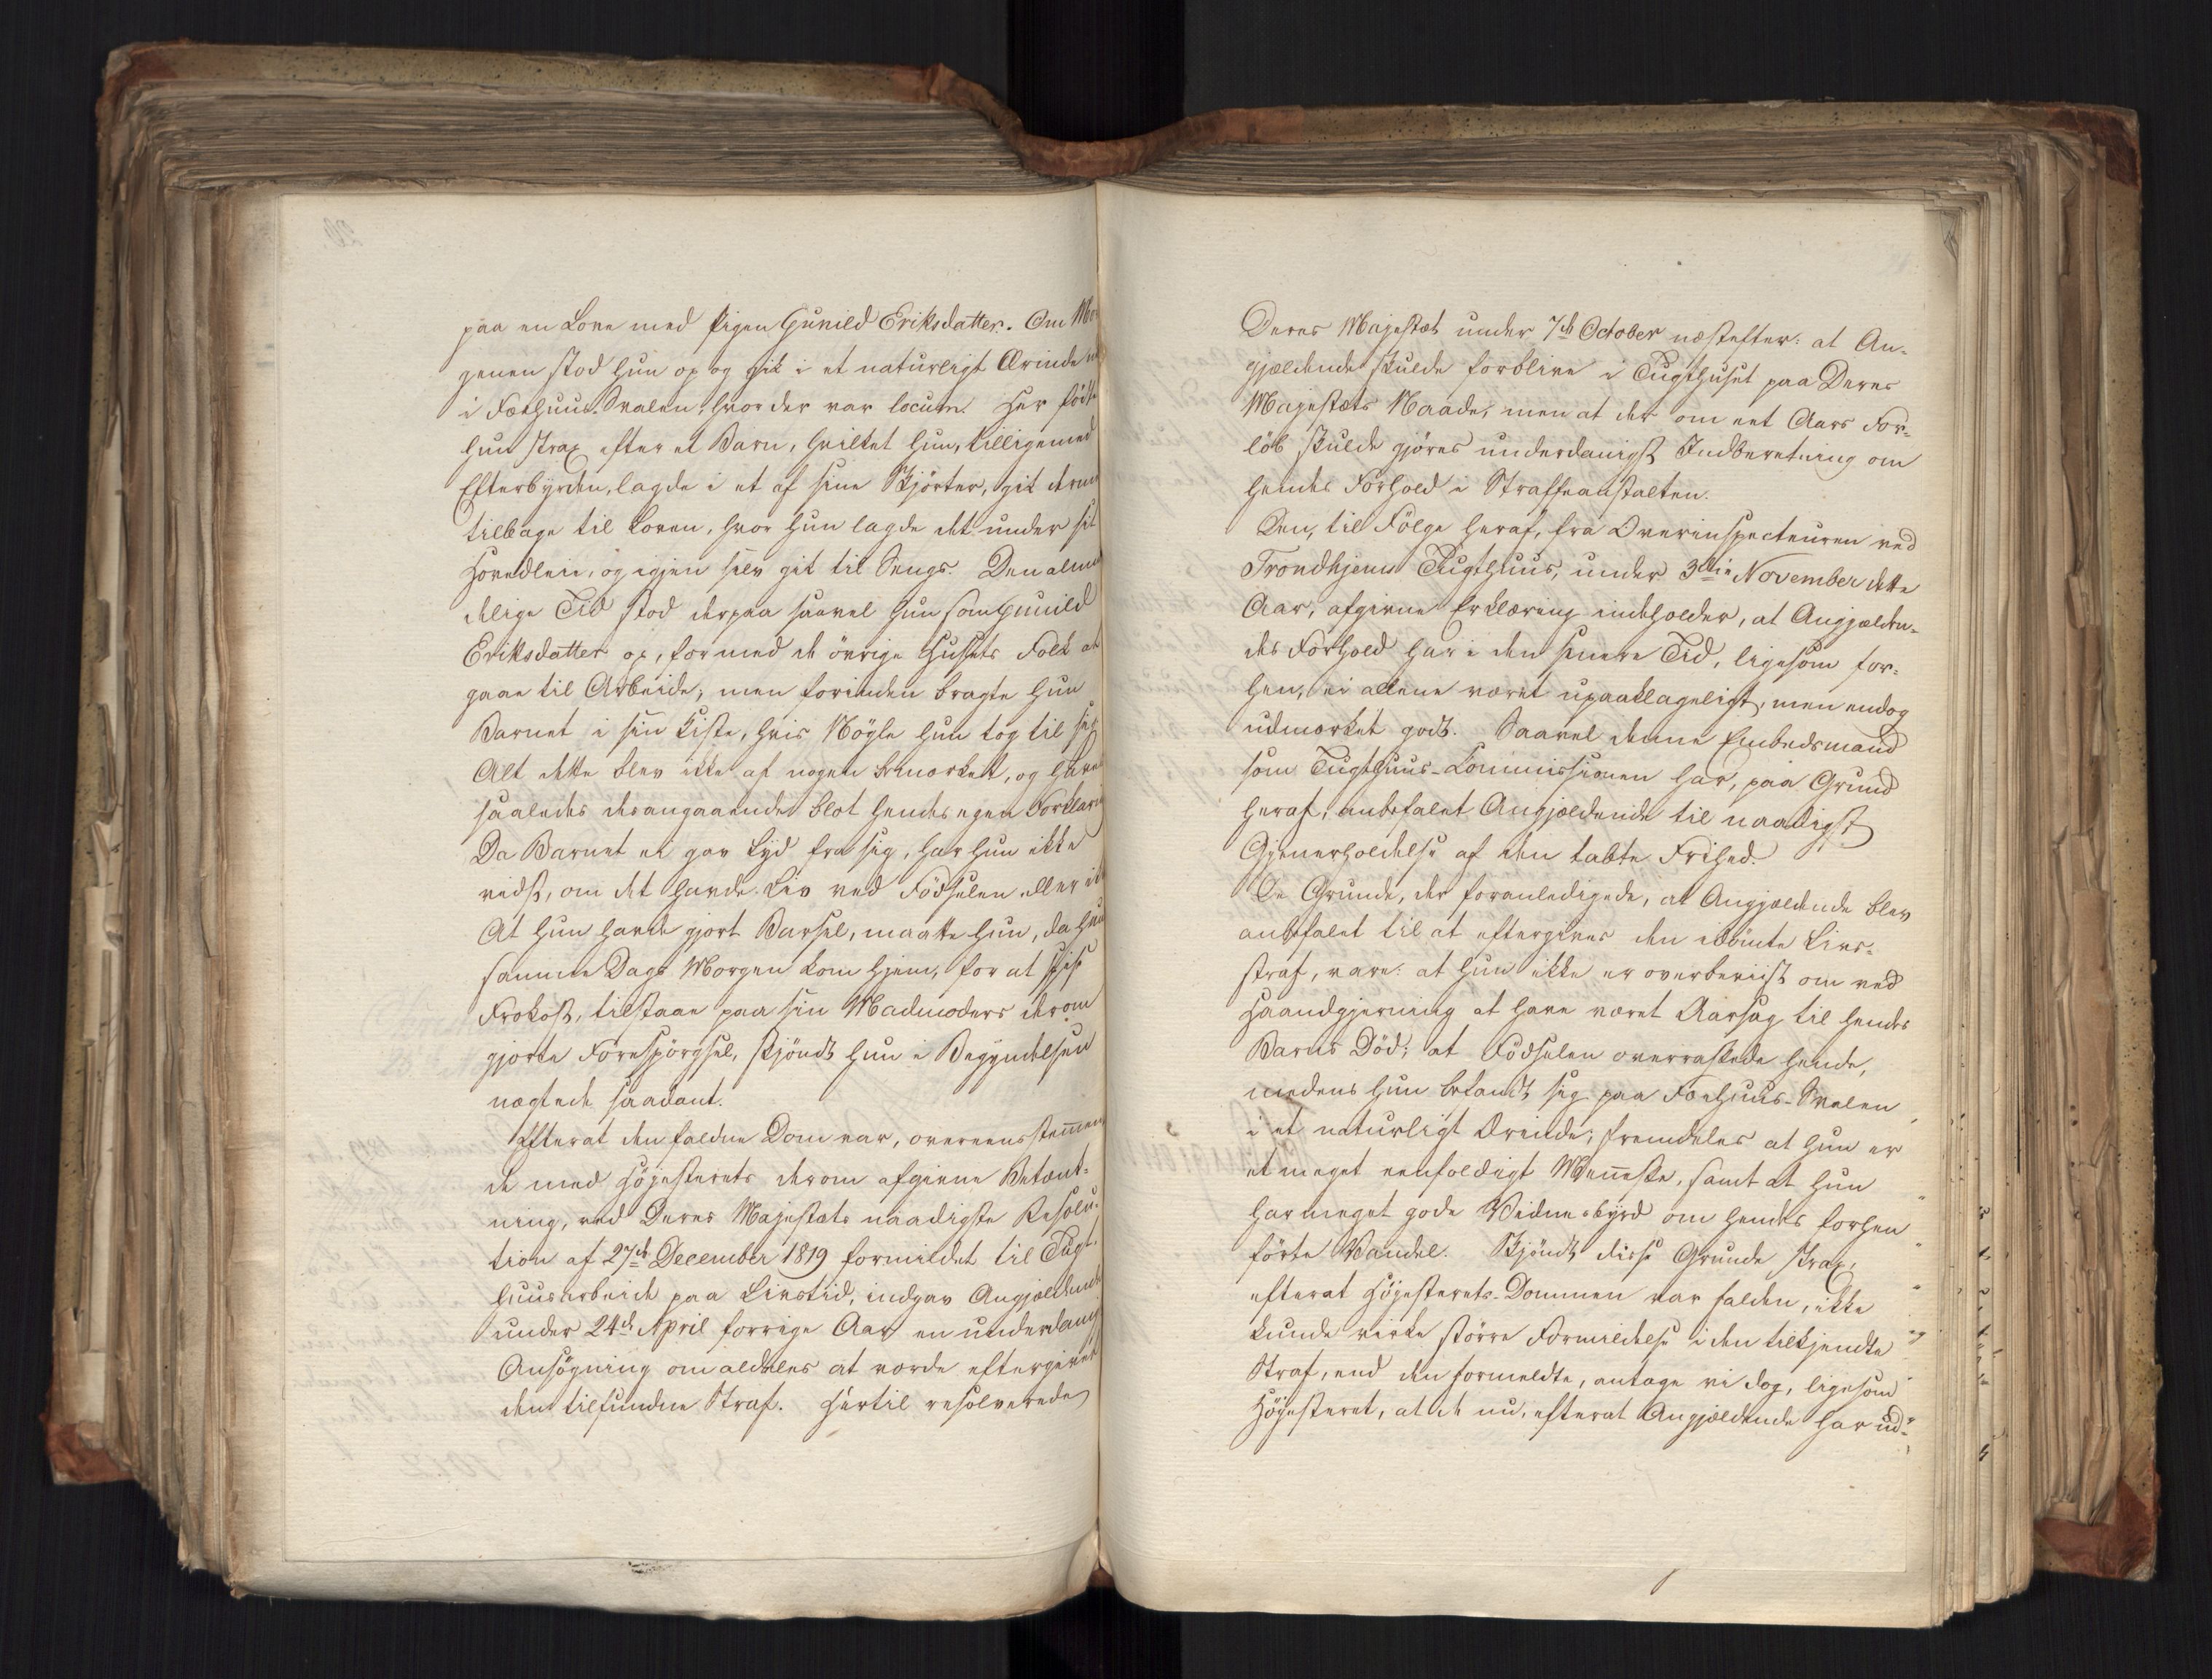 paa en Love med Pigen Gunild Eriksdatter. Om Mor
genen stod hun op og gik i et naturligt Ærinde
i Fæehuus-Svalen, hvor der var locum. Her födte
hun strax efter et Barn, hvilket hun, tilligemed
Efterbyrden, lagde i et af sine Skjörter, gik dermed
tilbage til Loven, hvor hun lagde det under sit
Hovedleie, og igjen selv gik til Sengs. Den almin
delige Tid stod derpaa saavel hun som Gunild
Eriksdatter op, for med de övrige Husets Folk at
gaae til Arbeide, men forinden bragte hun
Barnet i sin Kiste, hvis Nögle hun tog til sig.
Alt dette blev ikke af nogen bemærket, og haves
saaledes desangaaende blot hendes egen Forklaring
Da Barnet ei gav Lyd fra sig, har hun ikke
vidst, om det havde Liv ved Födselen eller ikke
At hun havde gjort Barsel, maatte hun, da hun
samme Dags Morgen kom hjem, for at spise
Frokost, tilstaae paa sin Madmoders derom
gjorte Forespörgsel, skjöndt hun i Begyndelsen
nægtede saadant.
Efterat den faldne Dom var, overeensstemmen
de med Höjesterets derom afgivne Betænk-
ning, ved Deres Majestæts naadigste Resolu-
tion af 27de December 1819 formildet til Tugt-
huusarbeide paa Livstid, indgav Angjældende
under 24de April forrige Aar en underdanig
Ansögning om aldeles at vorde eftergivet
den tilfundne Straf. Hertil resolverede
Deres Majestæt under 7de October næstefter: at An-
gjældende skulde forblive i Tugthuset paa Deres
Majestæts Naade, men at der om eet Aars For-
löb skulde gjöres underdanigst Indberetning om
hendes Forhold i Straffeanstalten.
Den, til Fölge heraf, fra Overinspecteuren ved
Trondhjems Tugthuus, under 3die November dette
Aar, afgivne Erklæring indeholder, at Angjælden-
des Forhold har i den senere Tid, ligesom for-
hen, ei allene været upaaklageligt, men endog
udmærket godt. Saavel denne Embedsmand
som Tugthuus-Commissionen har, paa Grund
heraf, anbefalet Angjældende til naadigst
Gjenerholdelse af den tabte Frihed.
De Grunde, der foranledigede, at Angjældende blev
anbefalet til at eftergives den idömte Livs-
straf, vare: at hun ikke er overbeviist om ved
Haandgjerning at have været Aarsag til hendes
Barns Död; at Födselen overraskede hende,
medens hun befandt sig paa Fæehuus-Svalen
i et naturligt Ærinde; fremdeles at hun er
et meget eenfoldigt Menneske, samt at hun
har meget gode Vidnesbyrd om hendes forhen
förte Vandel. Skjöndt disse Grunde strax,
efterat Höjesterets-Dommen var falden, ikke
kunde virke större Formildelse i den tilkjendte
Straf, end den formeldte, antage vi dog, ligesom
Höjesteret, at de nu, efterat Angjældende har ud-